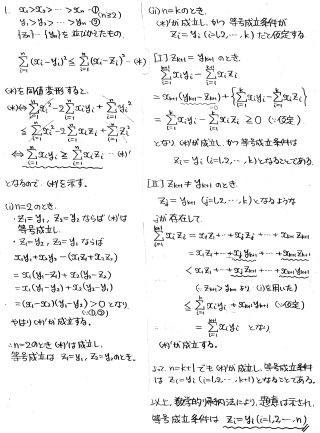 1. x₁>x₂>…>xₙ —①
y₁>y₂>…>yₙ —② (n≧2)
{z₁}…{yₙ}を並びかえたもの、
Σ(xᵢ-yᵢ)² ≦ Σ(xᵢ-zᵢ)² …(*)
(*)を同値変形すると、
(*)⇔ Σxᵢ² - 2Σxᵢyᵢ + Σyᵢ²
≦ Σxᵢ² - 2Σxᵢzᵢ + Σzᵢ²
⇔ Σxᵢyᵢ ≧ Σxᵢzᵢ …(*)'
となるので (*)'を示す。
(i) n=2のとき.
・z₁=y₁, z₂=y₂ ならば (*)'は
等号成立し.
・z₁=y₂, z₂=y₁ ならば
x₁y₁+x₂y₂-(x₁z₁+x₂z₂)
=x₁(y₁-z₁)+x₂(y₂-z₂)
=x₁(y₁-y₂)+x₂(y₂-y₁)
=(x₁-x₂)(y₁-y₂)>0 となり
(∵①,②)
やはり(*)'が成立する。
∴n=2のとき(*)'は成立し、
等号成立は z₁=y₁, z₂=y₂のとき。
(ii) n=kのとき.
(*)'が成立し、かつ等号成立条件が
zᵢ=yᵢ (i=1,2,…,k) だと仮定する
[I] zₖ₊₁=yₖ₊₁ のとき.
Σxᵢyᵢ-Σxᵢzᵢ
=xₖ₊₁(yₖ₊₁-zₖ₊₁)+{Σxᵢyᵢ-Σxᵢzᵢ}
=Σxᵢyᵢ-Σxᵢzᵢ≧0 (∵仮定)
となり (*)'が成立し、かつ等号成立条件は
zᵢ=yᵢ (i=1,2,…,k)となることである。
[II] zₖ₊₁≠yₖ₊₁ のとき.
zⱼ=yₖ₊₁ (j=1,2,…,k)となるような
jが存在して.
Σxᵢzᵢ=x₁z₁+…+xⱼzⱼ+…+xₖ₊₁zₖ₊₁
=x₁z₁+…+xⱼyₖ₊₁+…+xₖ₊₁zₖ₊₁
<x₁z₁+…+xⱼzₖ₊₁+…+xₖ₊₁yₖ₊₁
(∵zₖ₊₁>yₖ₊₁より(i)を用いた)
≦Σxᵢyᵢ+xₖ₊₁yₖ₊₁ (∵仮定)
=Σxᵢyᵢ となり
(*)'が成立する。
よって n=k+1でも(*)'が成立し、等号成立条件
は zᵢ=yᵢ (i=1,2,…,k+1)となることである。
以上、数学的帰納法により、題意は示され、
等号成立条件は zᵢ=yᵢ (i=1,2,…,n)